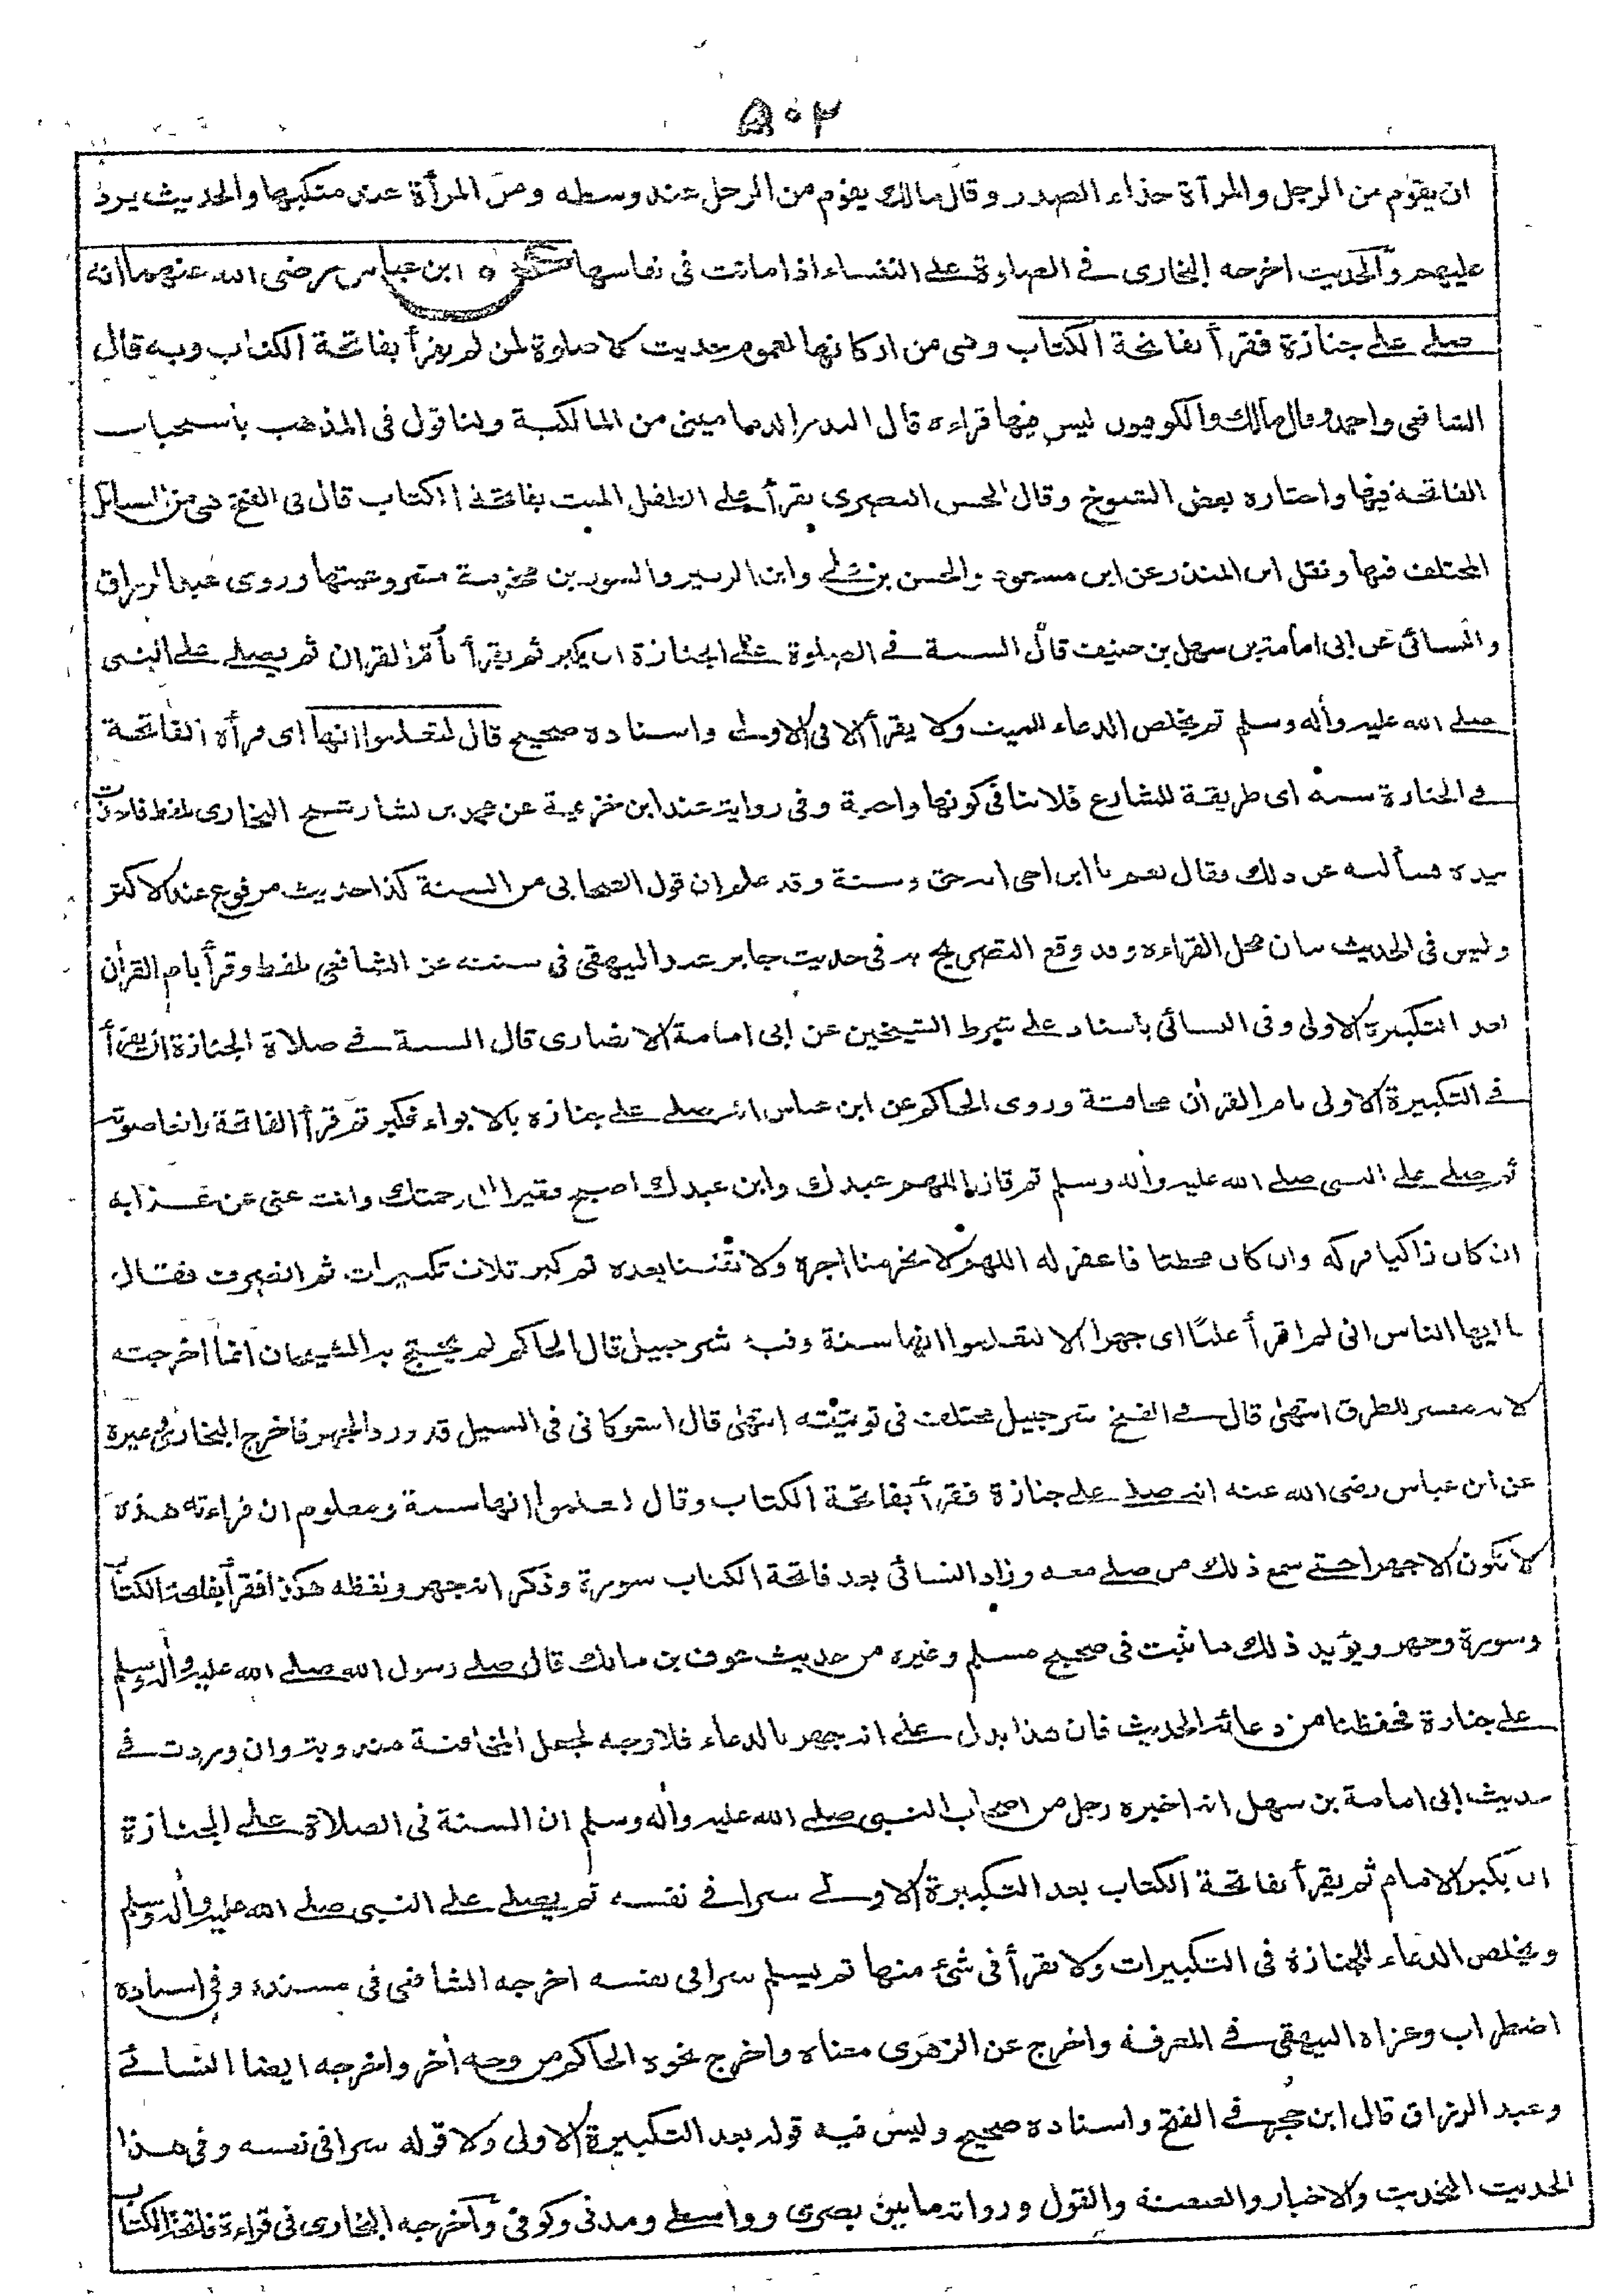 ٥٠٢
ان يقوم من الرجل والمرأة حذاء الصدر وقال مالك يقوم من الرجل عند وسطه ومن المرأة عند منكبها والحديث يرد
عليهم والحديث اخرجه البخارى فے الصلوة علے النفساء اذا ماتت فى نفاسها ابن عباس رضى الله عنهما انه
صلے علے جنازة فقرأ بفاتحة الكتاب وهى من اركانها لعموم حديث لا صلوة لمن لم يقرأ بفاتحة الكتاب وبه قال
الشافعى واحمد وقال مالك والكوفيون ليس فيها قراءة قال البدر الدمامينى من المالكية ولنا قول فى المذهب باستحباب
الفاتحة فيها واختاره بعض الشيوخ وقال الحسن البصرى يقرأ علے الطفل الميت بفاتحة الكتاب قال فى الفتح هى من المسائل
المختلف فيها ونقل ابن المنذر عن ابن مسعود والحسن بن علے وابن الزبير والمسور بن مخرمة مشروعيتها وروى عبد الرزاق
والنسائى عن ابى امامة بن سهل بن حنيف قال السنة فے الصلوة علے الجنازة ان يكبر ثم يقرأ بأم القران ثم يصلے علے النبى
صلے الله عليه وأله وسلم ثم يخلص الدعاء للميت ولا يقرأ الا فى الاولى واسناده صحيح قال لتعلموا انها اى قرأة الفاتحة
فے الجنازة سنة اى طريقة للشارع فلا ينافى كونها واجبة وفى رواية عند ابن خزيمة عن محمد بن بشار شيخ البخارى بلفظ فاخذت
بيده فسألته عن ذلك فقال نعم يا ابن اخى انه حق وسنة وقد علم ان قول الصحابى من السنة كذا حديث مرفوع عند الاكثر
وليس فى الحديث بيان محل القراءة وقد وقع التصريح به فى حديث جابر عند البيهقى فى سننه عن الشافعى بلفظ وقرأ بام القرأن
بعد التكبيرة الاولى وفى النسائى باسناد على شرط الشيخين عن ابى امامة الانصارى قال السنة فے صلاة الجنازة ان يقرأ
فے التكبيرة الاولى بام القرأن مخافتة وروى الحاكم عن ابن عباس انه صلے علے جنازة بالابواء فكبر ثم قرأ الفاتحة رافعا صوته
ثم صلے علے النبى صلے الله عليه وأله وسلم ثم قال اللهم عبدك وابن عبدك اصبح فقيرا الى رحمتك وانت غنى عن عذابه
ان كان زاكيا فزكه وان كان مخطئا فاغفر له اللهم لا تحرمنا اجره ولا تفتنا بعده ثم كبر ثلاث تكبيرات ثم انصرف فقال
يا ايها الناس انى لم اقرأ علنًا اى جهرا الا لتعلموا انها سنة وفيه شرحبيل قال الحاكم لم يحتج به الشيخان انما اخرجته
لانه مفسر للطرق انتهى قال فے الفتح شرحبيل مختلف فى توثيقه انتهى قال الشوكانى فى السيل قد ورد الجهر فاخرج البخارى وغيره
عن ابن عباس رضى الله عنه انه صلے علے جنازة فقرأ بفاتحة الكتاب وقال لتعلموا انها سنة ومعلوم ان قراءته هذه
لا تكون الا جهرا حتے سمع ذلك من صلے معه وزاد النسائى بعد فاتحة الكتاب سورة وذكر انه جهر ولفظه هكذا فقرأ بفاتحة الكتاب
وسورة وجهر ويؤيد ذلك ما ثبت فى صحيح مسلم وغيره من حديث عوف بن مالك قال صلے رسول الله صلے الله عليه وأله وسلم
علے جنازة فحفظنا من دعائه الحديث فان هذا يدل علے انه جهر بالدعاء فلا وجه لجعل المخافتة مندوبة وان وردت فے
حديث ابى امامة بن سهل انه اخبره رجل من اصحاب النبى صلے الله عليه وأله وسلم ان السنة فى الصلاة علے الجنازة
ان يكبر الامام ثم يقرأ بفاتحة الكتاب بعد التكبيرة الاولے سرا فے نفسه ثم يصلے علے النبى صلے الله عليه وأله وسلم
ويخلص الدعاء للجنازة فى التكبيرات ولا يقرأ فى شئ منها ثم يسلم سرا فى نفسه اخرجه الشافعى فى مسنده وفى اسناده
اضطراب وعزاه البيهقى فے المعرفة واخرج عن الزهرى معناه واخرج نحوه الحاكم من وجه أخر واخرجه ايضا النسائے
وعبد الرزاق قال ابن حجر فے الفتح واسناده صحيح وليس فيه قوله بعد التكبيرة الاولى ولا قوله سرا فى نفسه وفى هذا
الحديث التحديث والاخبار والعنعنة والقول ورواته ما بين بصرى وواسطے ومدنى وكوفى وأخرجه البخارى فى قراءة فاتحة الكتاب